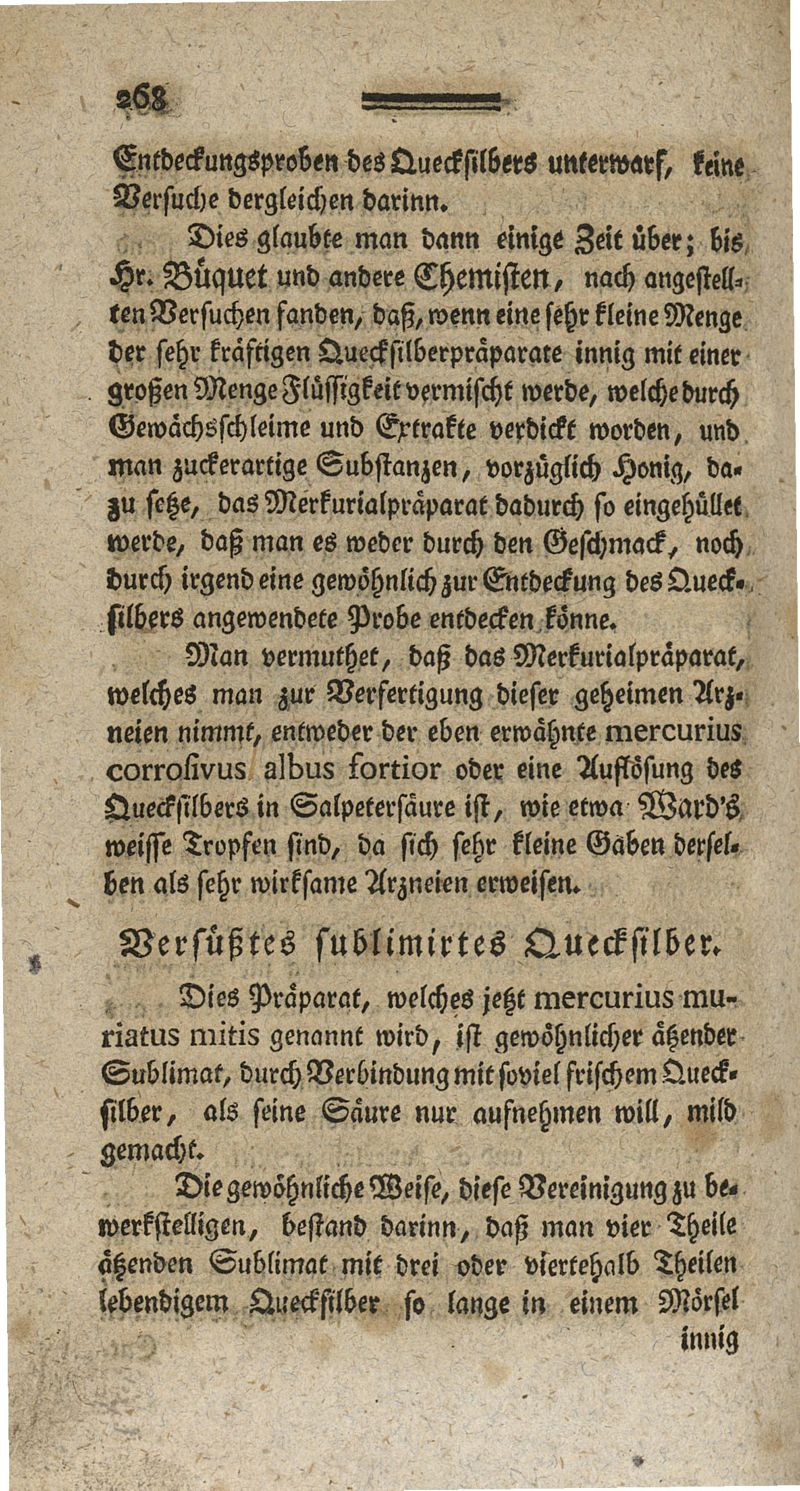 268
Entdeckungsproben des Quecksilbers unterwarf, keine
Versuche dergleichen darinn.
Dies glaubte man dann einige Zeit über; bis
Hr. Büquet und andere Chemisten, nach angestell-
ten Versuchen fanden, daß, wenn eine sehr kleine Menge
der sehr kräftigen Quecksilberpräparate innig mit einer
großen Menge Flüssigkeit vermischt werde, welche durch
Gewächsschleime und Extrakte verdickt worden, und
man zuckerartige Substanzen, vorzüglich Honig, da-
zu setze, das Merkurialpräparat dadurch so eingehüllet
werde, daß man es weder durch den Geschmack, noch
durch irgend eine gewöhnlich zur Entdeckung des Queck-
silbers angewendete Probe entdecken könne.
Man vermuthet, daß das Merkurialpräparat,
welches man zur Verfertigung dieser geheimen Arz-
neien nimmt, entweder der eben erwähnte mercurius
corrosivus albus fortior oder eine Auflösung des
Quecksilbers in Salpetersäure ist, wie etwa Ward's
weisse Tropfen sind, da sich sehr kleine Gaben dersel-
ben als sehr wirksame Arzneien erweisen.
Versüßtes sublimirtes Quecksilber.
Dies Präparat, welches jetzt mercurius mu-
riatus mitis genannt wird, ist gewöhnlicher ätzender
Sublimat, durch Verbindung mit soviel frischem Queck-
silber, als seine Säure nur aufnehmen will, mild
gemacht.
Die gewöhnliche Weise, diese Vereinigung zu be-
werkstelligen, bestand darinn, daß man vier Theile
ätzenden Sublimat mit drei oder viertehalb Theilen
lebendigem Quecksilber so lange in einem Mörsel
innig